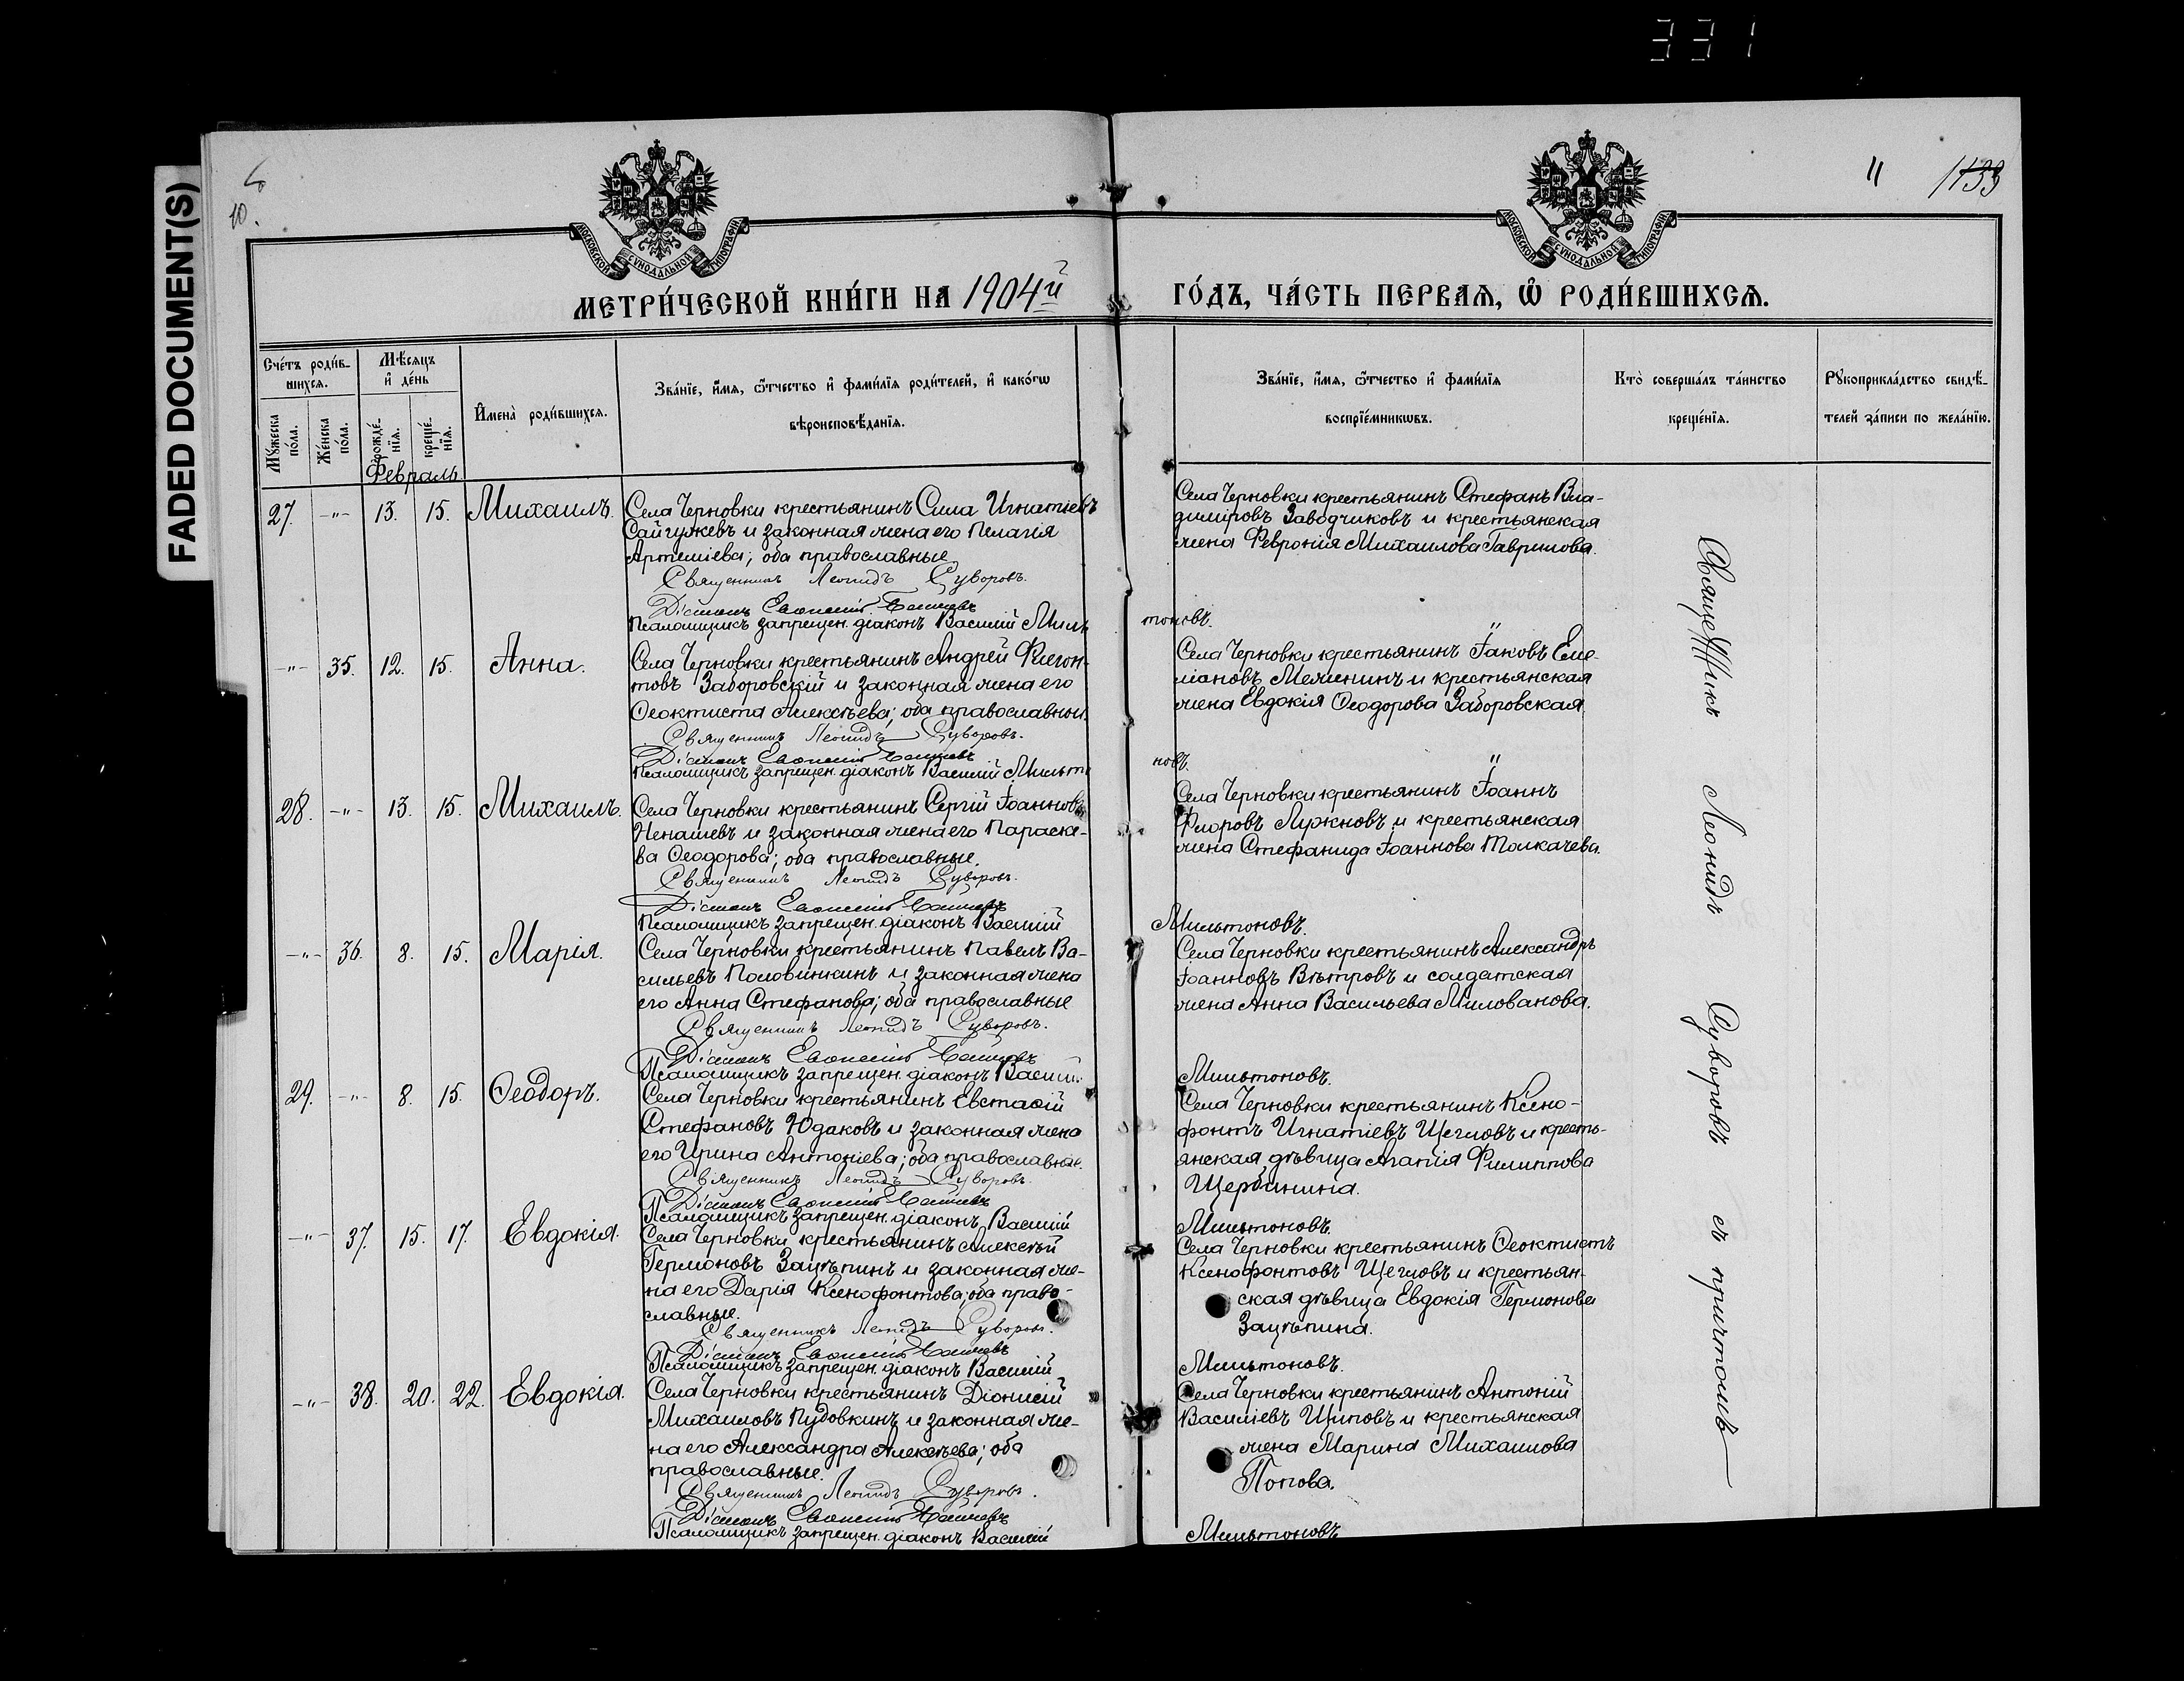 331
FADED DOCUMENT(S)
10.
" 1133
МОСКОВСКОЙ СѴНОДАЛЬНОЙ ТИПОГРАФІИ
МОСКОВСКОЙ СѴНОДАЛЬНОЙ ТИПОГРАФІИ
МЕТРИ́ЧЕСКОЙ КНИ́ГИ НА 1904й ГО́ДЪ, ЧА́СТЬ ПЕРВАЯ, Ѡ РОДИ́ВШИХСЯ.
Сче́тъ роди́в-
шихся.
Мꙋ́жеска по́ла.
Же́нска по́ла.
Мѣ́сяцъ и де́нь
рожде́-нїя.
креще́-нїя.
Имена̀ роди́вшихся.
Зва́нїе, и́мя, ѻ҆́тчество и фами́лїя роди́телей, и како́гѡ
вѣроисповѣ́данїя.
Зва́нїе, и́мя, ѻ҆́тчество и фами́лїя
воспрїе́мникѡвъ.
Кто̀ соверша́лъ та́инство
креще́нїя.
Рꙋкоприкла́дство свидѣ́-
телей за́писи по жела́нїю.
Февраль
27. -"- 13. 15. Михаилъ.
Села Черновки крестьянинъ Сила Игнатіевъ
Сайгужевъ и законная жена его Пелагія
Артеміева; оба православные
Священникъ Леонидъ Суворовъ.
Діаконъ
Псаломщикъ запрещен. діаконъ Василій Мильтоновъ.
Села Черновки крестьянинъ Стефанъ Вла-
диміровъ Заводчиковъ и крестьянская
жена Февронія Михаилова Гаврилова.
-"- 35. 12. 15. Анна.
Села Черновки крестьянинъ Андрей Флегон-
товъ Заборовскій и законная жена его
Ѳеоктиста Алексѣева; оба православные.
Священникъ Леонидъ Суворовъ.
Діаконъ
Псаломщикъ запрещен. діаконъ Василій Мильтоновъ.
"
Села Черновки крестьянинъ Іаковъ Еме-
ліановъ Мелинъ и крестьянская
жена Евдокія Ѳеодорова Заборовская
28. -"- 13. 15. Михаилъ.
Села Черновки крестьянинъ Сергій Іоанновъ
Ненашевъ и законная жена его Параске-
ва Ѳеодорова; оба православные.
Священникъ Леонидъ Суворовъ.
Діаконъ
Псаломщикъ запрещен. діаконъ Василій Мильтоновъ.
"
Села Черновки крестьянинъ Іоаннъ
Флоровъ и крестьянская
жена Стефанида Іоаннова Толкачева.
-"- 36. 8. 15. Марія.
Села Черновки крестьянинъ Павелъ Ва-
сильевъ Половинкинъ и законная жена
его Анна Стефанова; оба православные
Священникъ Леонидъ Суворовъ.
Діаконъ
Псаломщикъ запрещен. діаконъ Василій Мильтоновъ.
Села Черновки крестьянинъ Александръ
Іоанновъ Вѣтровъ и солдатская
жена Анна Васильева Милованова.
29. -"- 8. 15. Ѳеодоръ.
Села Черновки крестьянинъ Евстаѳій
Стефановъ Юдаковъ и законная жена
его Ирина Антоніева; оба православные.
Священникъ Леонидъ Суворовъ
Діаконъ
Псаломщикъ запрещен. діаконъ Василій Мильтоновъ.
Села Черновки крестьянинъ Ксено-
фонтъ Игнатіевъ Щегловъ и кресть-
янская дѣвица Агапія Филиппова
Щербинина.
-"- 37. 15. 17. Евдокія.
Села Черновки крестьянинъ Алексѣй
Гермоновъ Зацѣпинъ и законная же-
на его Дарія Ксенофонтова; оба право-
славные.
Священникъ Леонидъ Суворовъ.
Діаконъ
Псаломщикъ запрещен. діаконъ Василій Мильтоновъ.
Села Черновки крестьянинъ Ѳеоктистъ
Ксенофонтовъ Щегловъ и крестьян-
ская дѣвица Евдокія Гермонова
Зацѣпина.
-"- 38. 20. 22. Евдокія.
Села Черновки крестьянинъ Діонисій
Михаиловъ Пудовкинъ и законная же-
на его Александра Алексѣева; оба
православные.
Священникъ Леонидъ Суворовъ.
Діаконъ
Псаломщикъ запрещен. діаконъ Василій Мильтоновъ
Села Черновки крестьянинъ Антоній
Василіевъ Щиповъ и крестьянская
жена Марина Михаилова
Попова.
Священникъ Леонидъ Суворовъ съ причтомъ